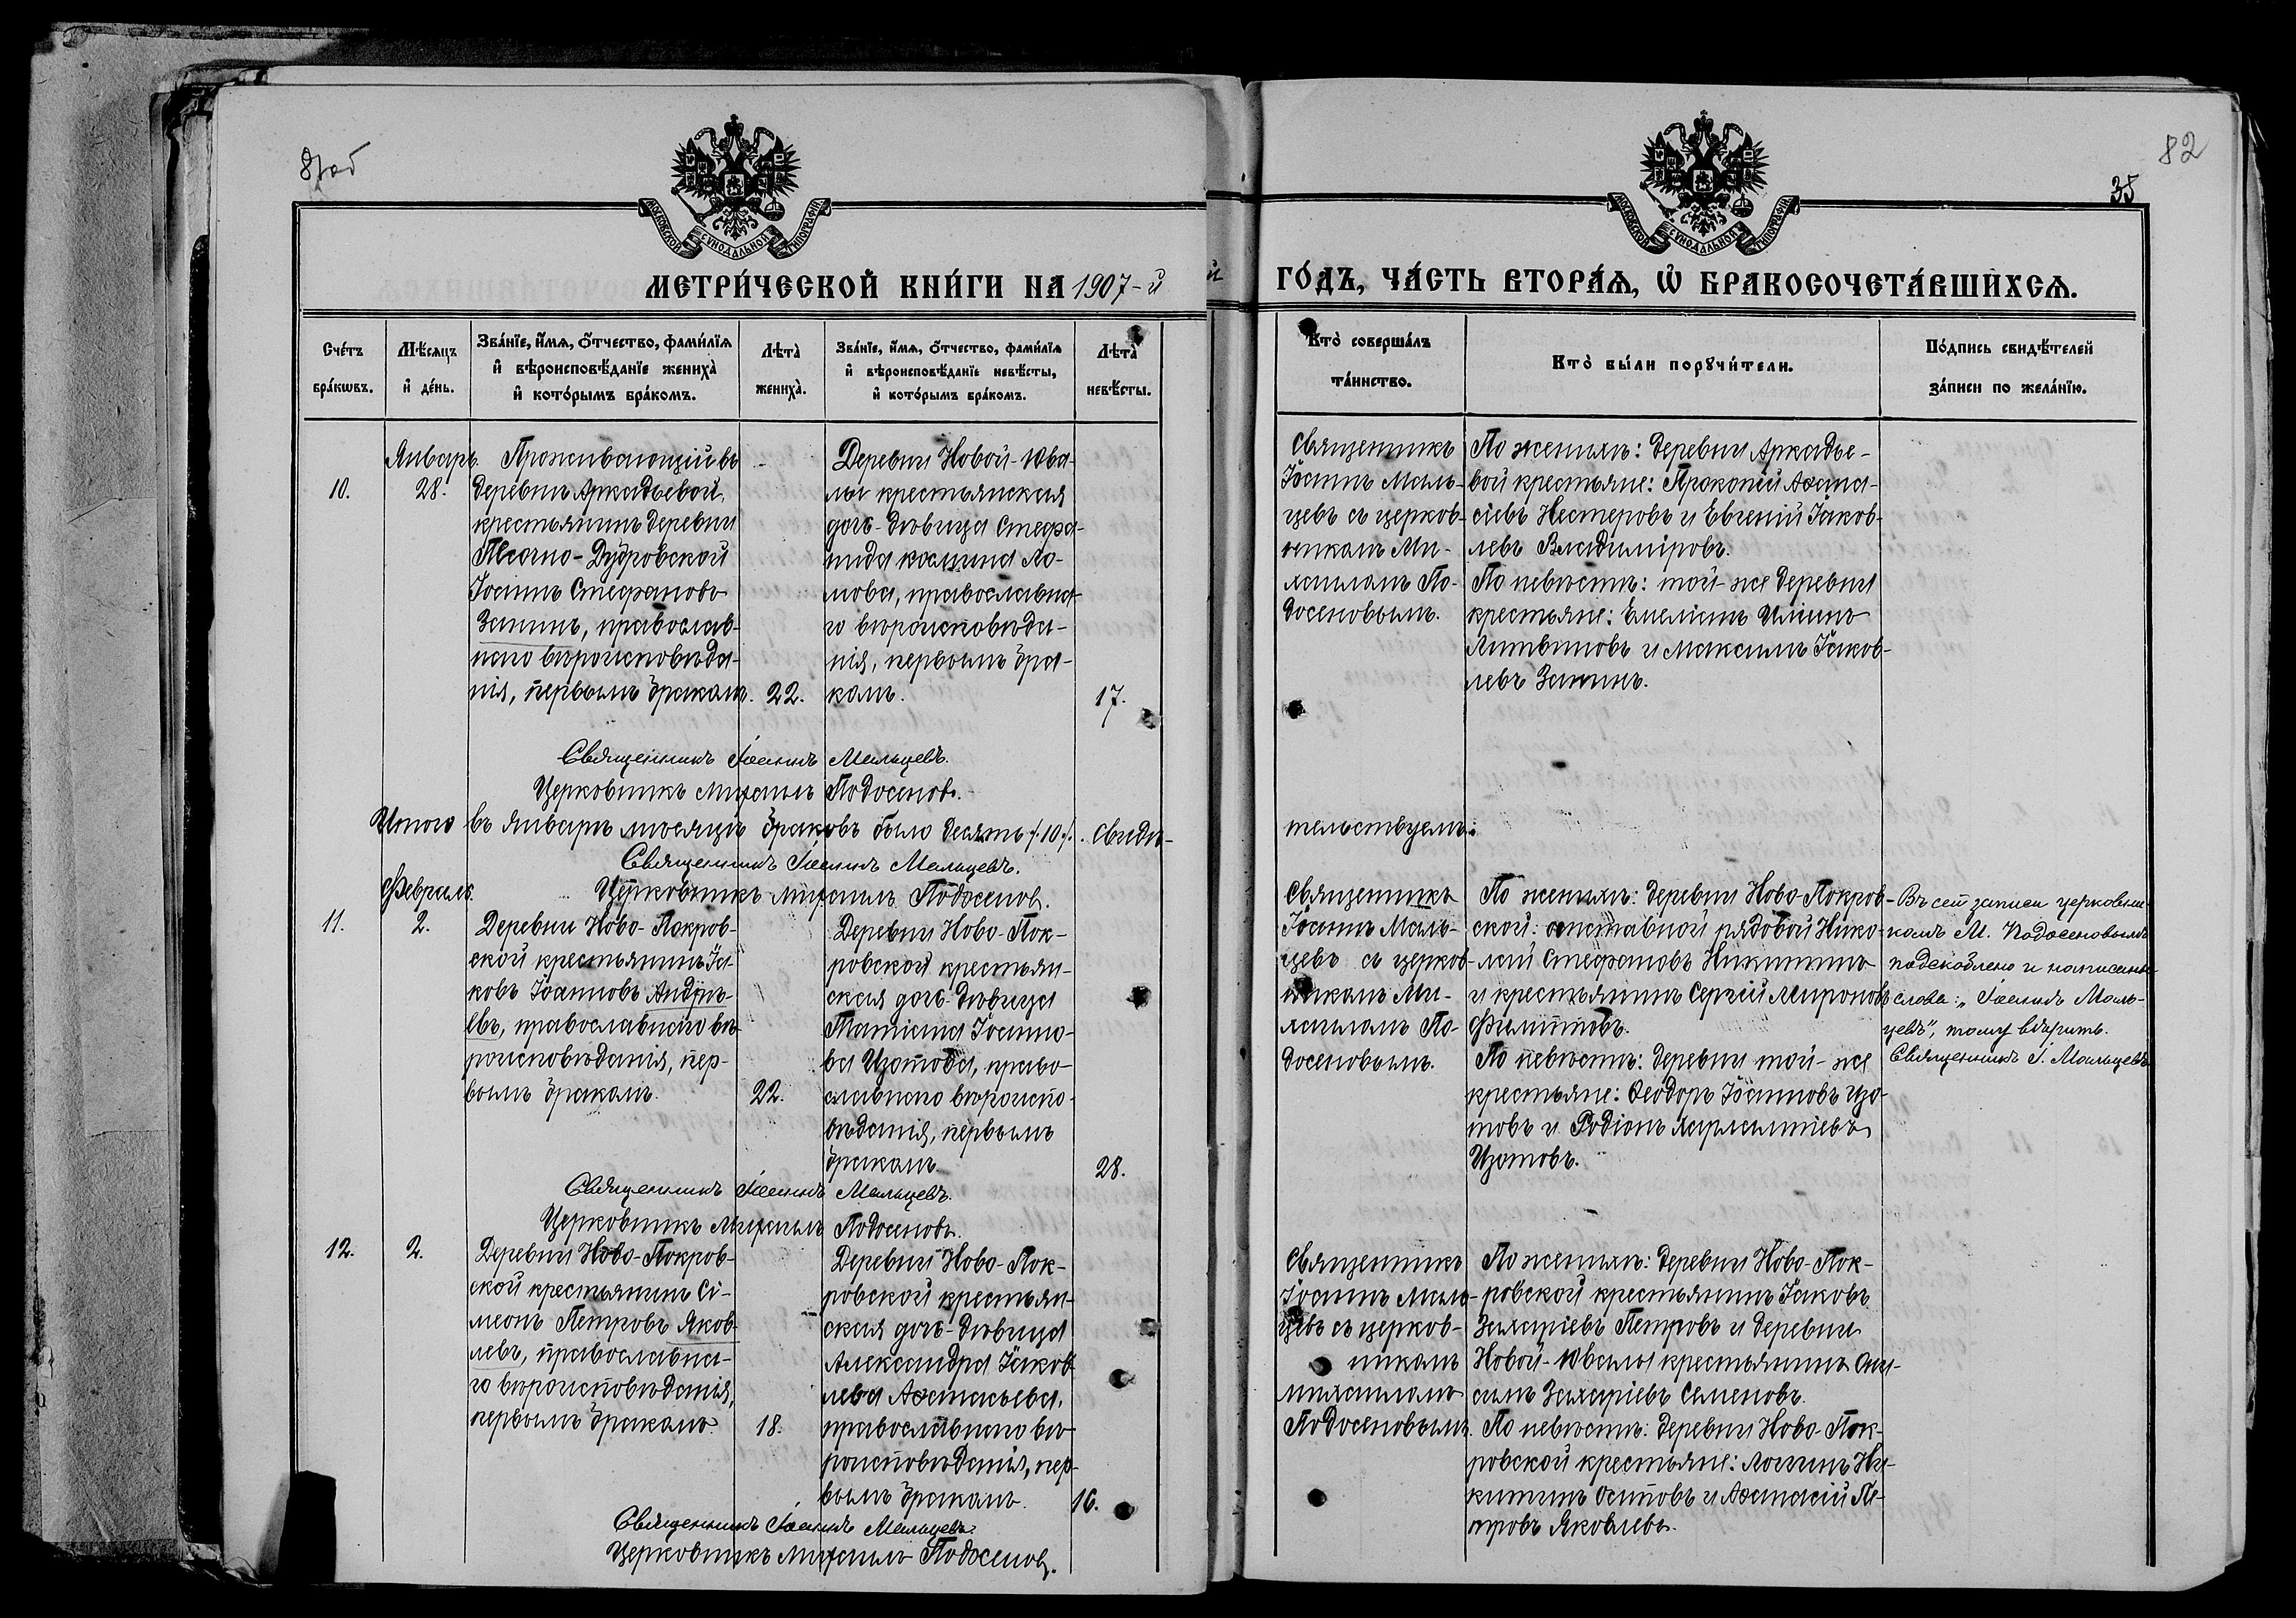 81об
82
35
МОСКОВСКОЙ СѴНОДАЛЬНОЙ ТИПОГРАФІИ
МОСКОВСКОЙ СѴНОДАЛЬНОЙ ТИПОГРАФІИ
МЕТРИ́ЧЕСКОЙ КНИ́ГИ НА 1907-й
ГО́ДЪ, ЧА́СТЬ ВТОРА́Ѧ, Ѽ БРАКОСОЧЕТА́ВШИХСѦ.
Сче́тъ бра́кѡвъ.
Мѣ́сяцъ и҆ де́нь.
Зва́нїе, и҆́мѧ, о҆́тчество, фами́лїѧ и҆ вѣроисповѣ́данїе жениха̀ и҆ кото́рымъ бра́комъ.
Лѣта̀ жениха̀.
Зва́нїе, и҆́мѧ, о҆́тчество, фами́лїѧ и҆ вѣроисповѣ́данїе невѣ́сты, и҆ кото́рымъ бра́комъ.
Лѣта̀ невѣ́сты.
Кто̀ соверша́лъ та́инство.
Кто̀ бы́ли порꙋчи́тели.
По́дпись свидѣ́телей за́писи по жела́нїю.
Январь.
10.
28.
Проживающій въ
деревни Аркадьевой,
крестьянинъ деревни
Песочно-Дубровской
Іоаннъ Стефановъ
Занинъ, православ-
наго вѣроисповѣда-
нія, первымъ бракомъ.
22.
Деревни Новой-Юва-
лы крестьянская
дочь-дѣвица Стефа-
нида Космина Ло-
мова, православна-
го вѣроисповѣда-
нія, первымъ бра-
комъ.
17.
Священникъ
Іоаннъ Маль-
цевъ съ церков-
никомъ Ми-
хаиломъ По-
досеновымъ.
По женихѣ: деревни Аркадье-
вой крестьяне: Прокопій Аѳана-
сіевъ Нестеровъ и Евгеній Іаков-
левъ Владиміровъ.
По невѣстѣ: той-же деревни
крестьяне: Емеліанъ Иліинъ
Литвиновъ и Максимъ Іаков-
левъ Занинъ.
Священникъ Іоаннъ Мальцевъ.
Церковникъ Михаилъ Подосенов.
Итого въ январѣ мѣсяцѣ браковъ было десять /:10:/. Свидѣ-
тельствуемъ:
Священникъ Іоаннъ Мальцевъ.
Церковникъ Михаилъ Подосенов.
Февраль.
11.
2.
Деревни Ново-Покров-
ской крестьянинъ Іа-
ковъ Іоанновъ Андрѣ-
евъ, православнаго вѣ-
роисповѣданія, пер-
вымъ бракомъ.
22.
Деревни Ново-Пок-
ровской крестьян-
ская дочь-дѣвица
Татіана Іоанно-
ва Изотова, право-
славнаго вѣроиспо-
вѣданія, первымъ
бракомъ
28.
Священникъ
Іоаннъ Маль-
цевъ съ церков-
никомъ Ми-
хаиломъ По-
досеновымъ.
По женихѣ: деревни Ново-Покров-
ской: отставной рядовой Нико-
лай Стефановъ Никитинъ
и крестьянинъ Сергій Мироновъ
Филипповъ.
По невѣстѣ: деревни той-же
крестьяне: Ѳеодоръ Іоанновъ Изо-
товъ и Родіонъ Харлампіевъ
Изотовъ.
Въ сей записи церковни-
комъ М. Подосеновымъ
подскоблено и написаны
слова: „Іоаннъ Маль-
цевъ“, тому вѣрить.
Священникъ І. Мальцевъ
Священникъ Іоаннъ Мальцевъ.
Церковникъ Михаилъ Подосеновъ.
12.
2.
Деревни Ново-Покров-
ской крестьянинъ Сі-
меонъ Петровъ Яков-
левъ, православна-
го вѣроисповѣданія,
первымъ бракомъ.
18.
Деревни Ново-Пок-
ровской крестьян-
ская дочь-дѣвица
Александра Іаков-
лева Аѳанасьева,
православнаго вѣ-
роисповѣданія, пер-
вымъ бракомъ.
16.
Священникъ
Іоаннъ Маль-
цевъ съ церков-
никомъ
Михаиломъ
Подосеновымъ.
По женихѣ: деревни Ново-Пок-
ровской крестьянинъ Іаковъ
Захаріевъ Петровъ и деревни
Новой-Ювалы крестьянинъ Они-
симъ Захаріевъ Семеновъ.
По невѣстѣ: деревни Ново-Пок-
ровской крестьяне: Логинъ Ни-
китинъ Осиповъ и Аѳанасій Пе-
тровъ Яковлевъ.
Священникъ Іоаннъ Мальцевъ.
Церковникъ Михаилъ Подосенов.